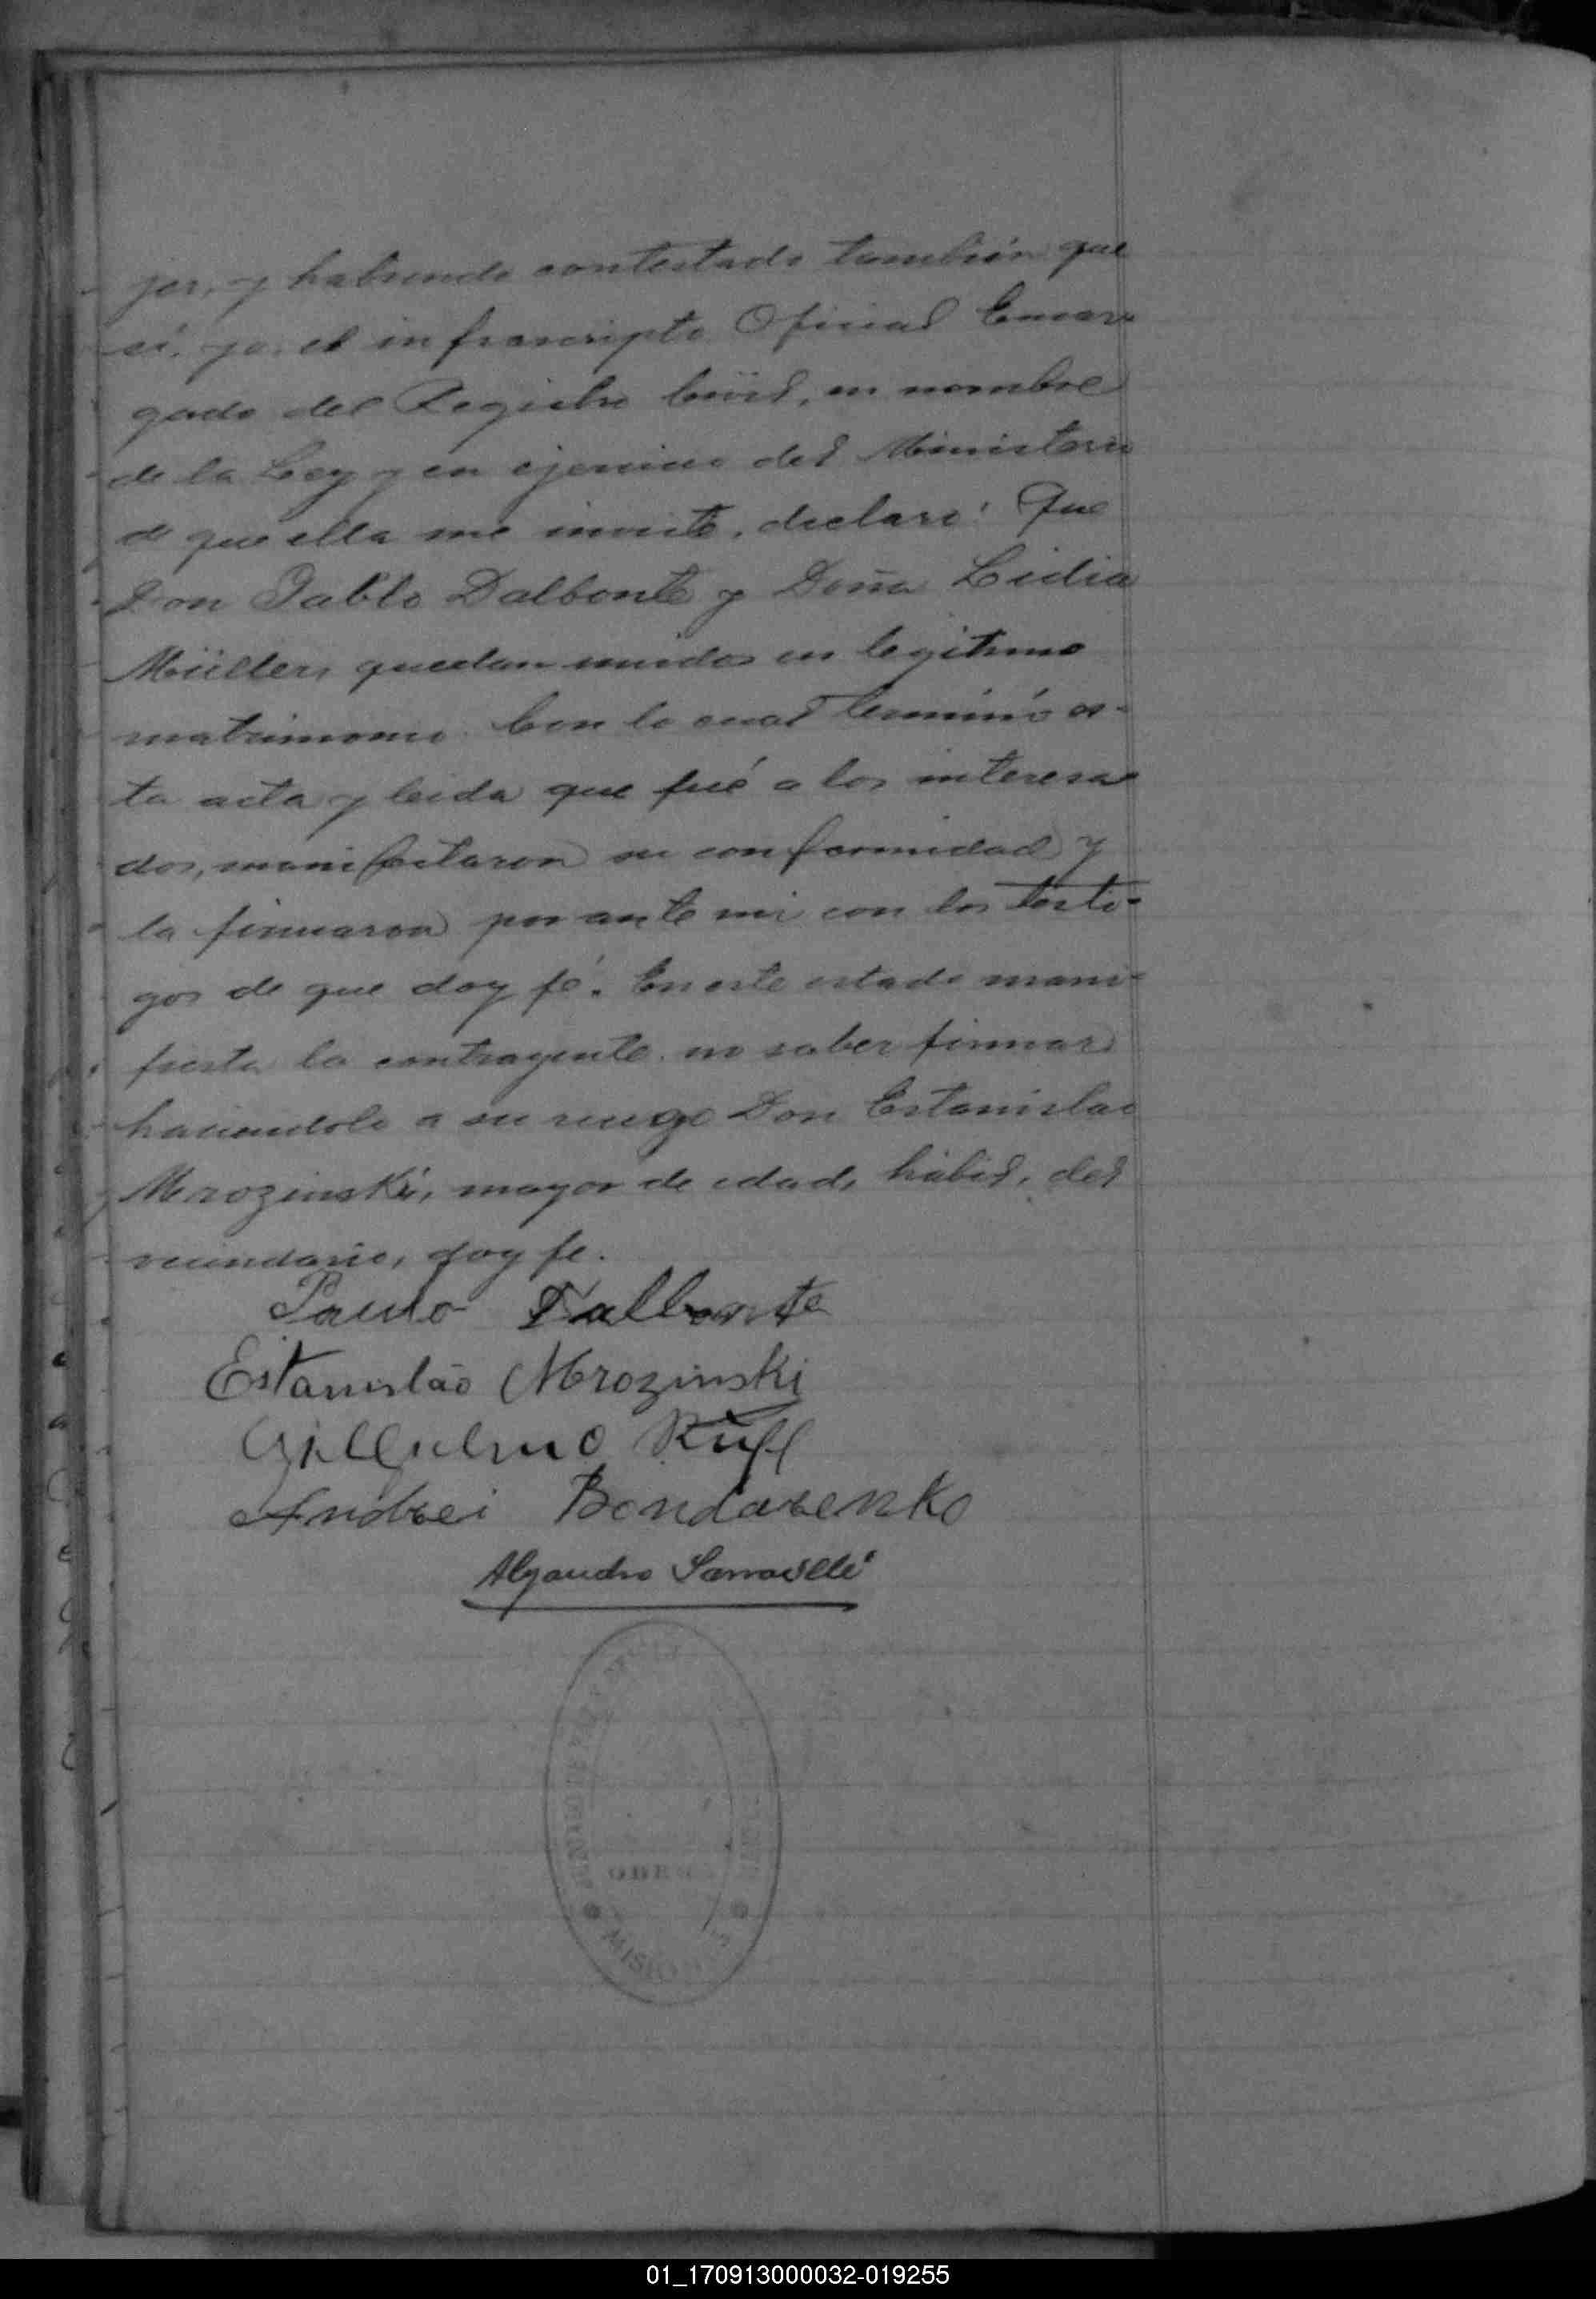 jer, y habiendo contestado también que
sí, yo, el infrascripto Oficial Encar-
gado del Registro Civil, en nombre
de la Ley y en ejercicio del Ministerio
de que ella me inviste, declaro: Que
Don Pablo Dalbonte y Doña Lidia
Müller, quedan unidos en legitimo
matrimonio. Con lo cual terminó es-
ta acta y leida que fué a los interesa-
dos, manifestaron su conformidad y
la firmaron por ante mi con los testi-
gos de que doy fé. En este estado mani-
fiesta la contrayente no saber firmar
haciendolo a su ruego Don Estanislao
Mrozinski, mayor de edad, hábil, del
vecindario, doy fe.
Paulo Dalbonte
Estanislão Mrozinski
Gillgulmo Ruff
Andrei Bondarenko
Alejandro
MISIONES
01_170913000032-019255